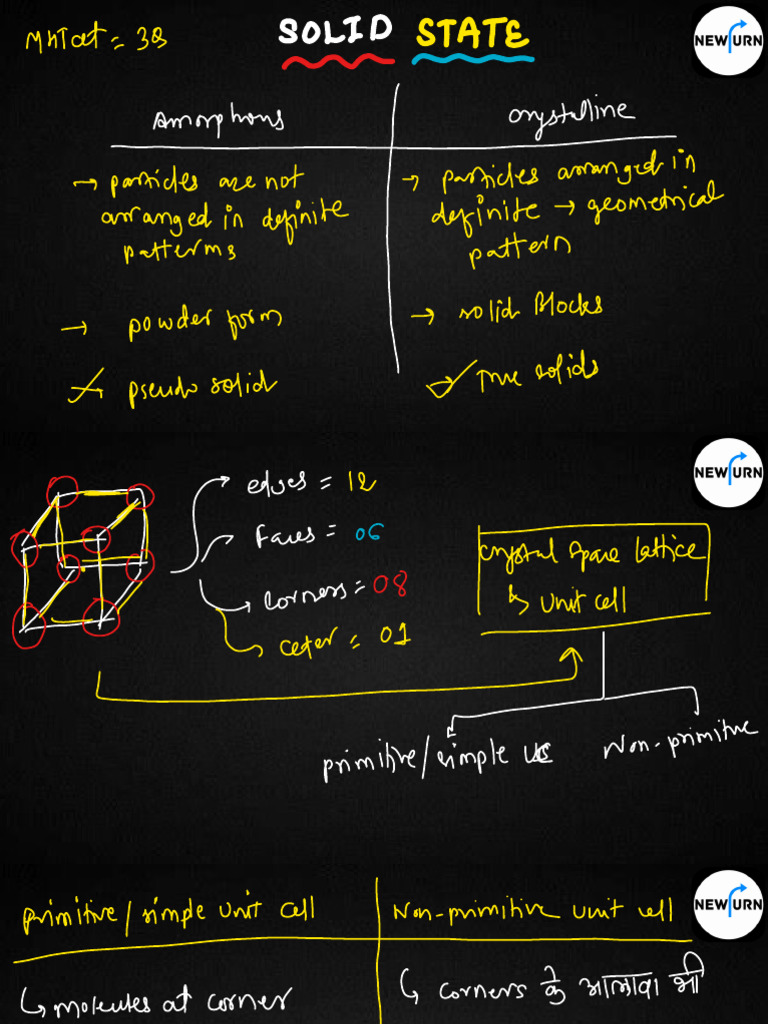 MhTcet = 38
SOLID STATE
NEW TURN
Amorphous
Crystalline
→ particles are not
arranged in definite
patterns
→ particles arranged in
definite → geometrical
pattern
→ powder form
→ solid Blocks
pseudo solid
True solids
NEW TURN
edges = 12
Faces = 06
corners = 08
ceter = 01
crystal space lattice
↳ unit cell
primitive / simple uc
Non-primitive
NEW TURN
primitive / simple unit cell
Non-primitive unit cell
↳ molecules at corner
↳ corners के आलावा भी